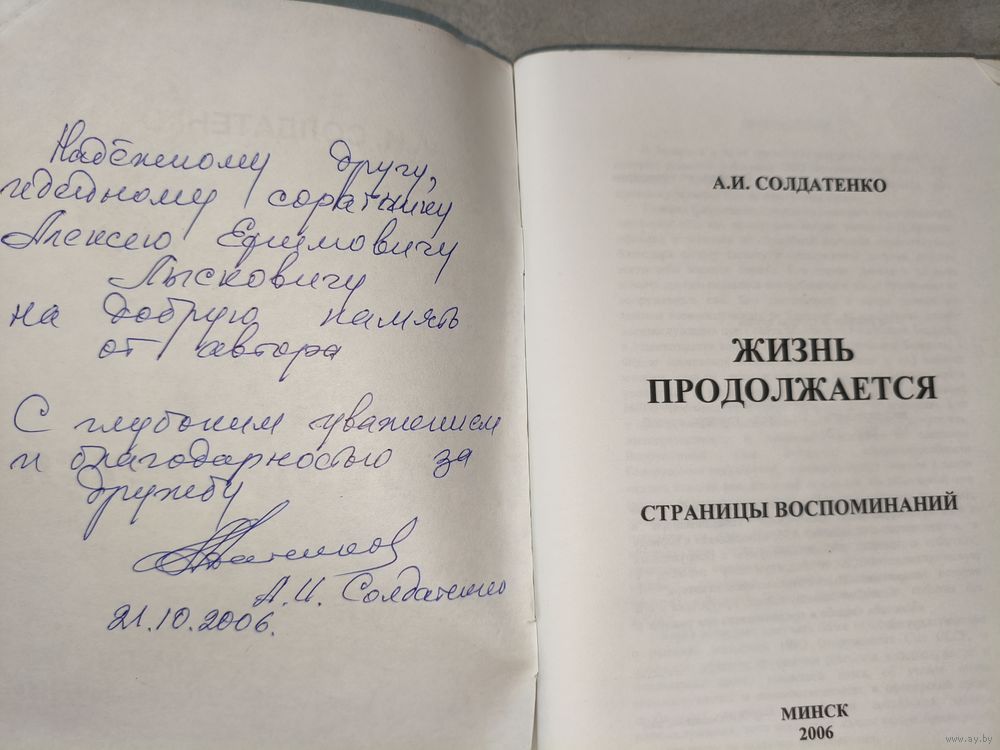 Надёжному другу,
идейному соратнику
Алексею Ефимовичу
Лысковичу
на добрую память
от автора
С глубоким уважением
и благодарностью за
дружбу
А.И. Солдатенко
21.10.2006.
А.И. СОЛДАТЕНКО
ЖИЗНЬ
ПРОДОЛЖАЕТСЯ
СТРАНИЦЫ ВОСПОМИНАНИЙ
МИНСК
2006
www.ay.by